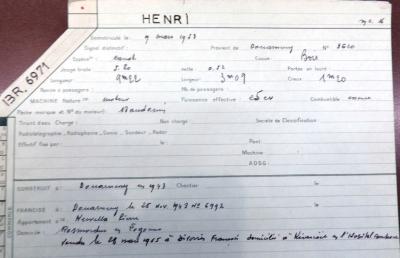 HENRI
BR. 6971
Immatriculé le : 9 mars 1953
Signal distinctif : Provient de Douarnenez N° 3620
Espèce : canot Coque : Bois
Jauge brute : 3.20 nette : 0.52 Portée en lourd :
Longueur : 9m22 Largeur : 3m09 Creux 1m20
Nombre de passagers : Nb. de passagers :
MACHINE Nature : moteur Puissance effective : 25 cv Combustible essence
Tirant d'eau Charge : Non chargé : Société de Classification :
Radiotélégraphie, Radiophonie, Consol, Sondeur, Radar
Effectif fixé par : le Pont :
Machine :
ADSG :
CONSTRUIT à : Douarnenez en 1943 Chantier le
FRANCISÉ à : Douarnenez le 25 nov 1943 No 6992
Appartenant à :
Domicile : Rosmorduc en Logonna
vendu le 28 mars 1955 à François domicilié à en l'Hôpital Camfrout